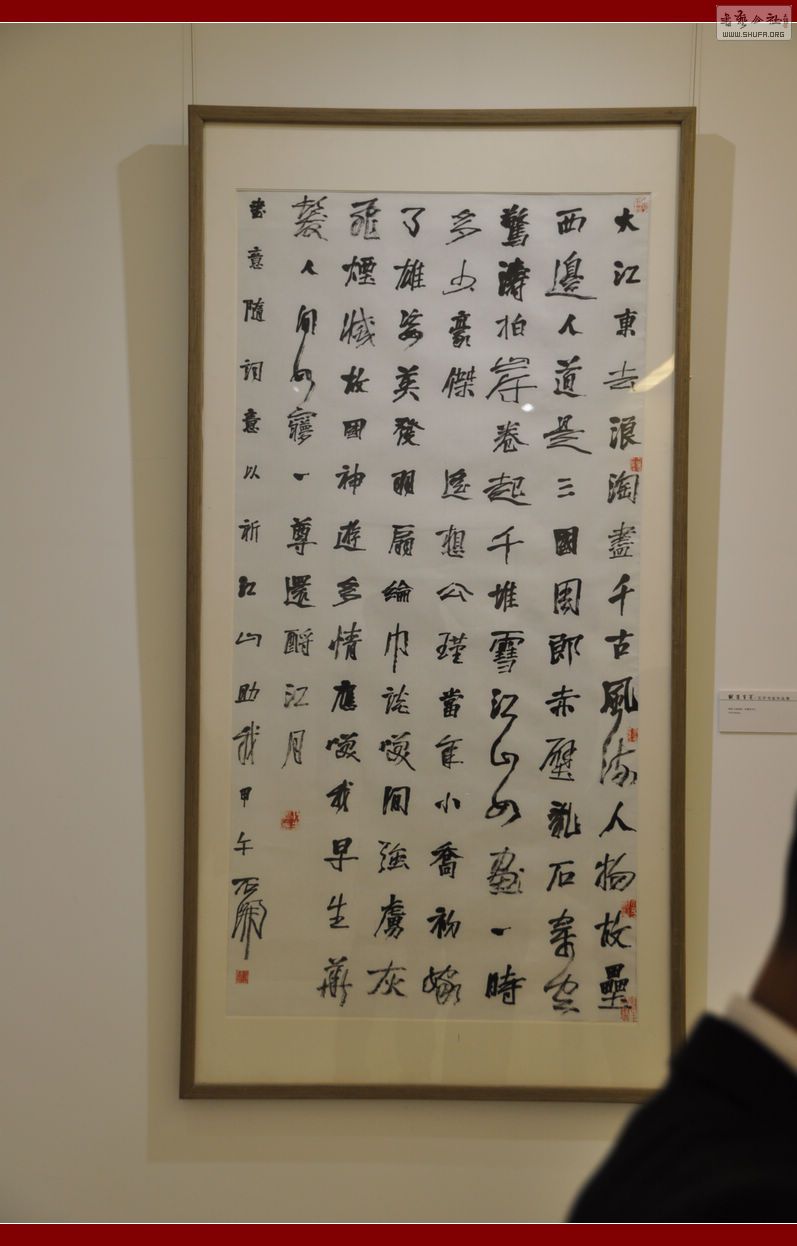 大江東去浪淘盡千古風流人物故壘
西邊人道是三國周郎赤壁亂石穿空
驚濤拍岸卷起千堆雪江山如畫一時
多少豪傑遙想公瑾當年小喬初嫁
了雄姿英發羽扇綸巾談笑間強虜灰
飛煙滅故國神遊多情應笑我早生華
髮人間如夢一尊還酹江月
書意隨詞意以祈江山助我甲午石開
WWW.SHUFA.ORG